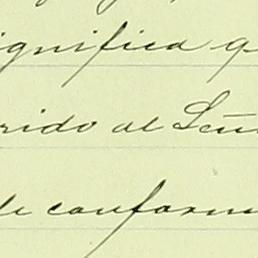 ignifica q
rido al Señ
de conform